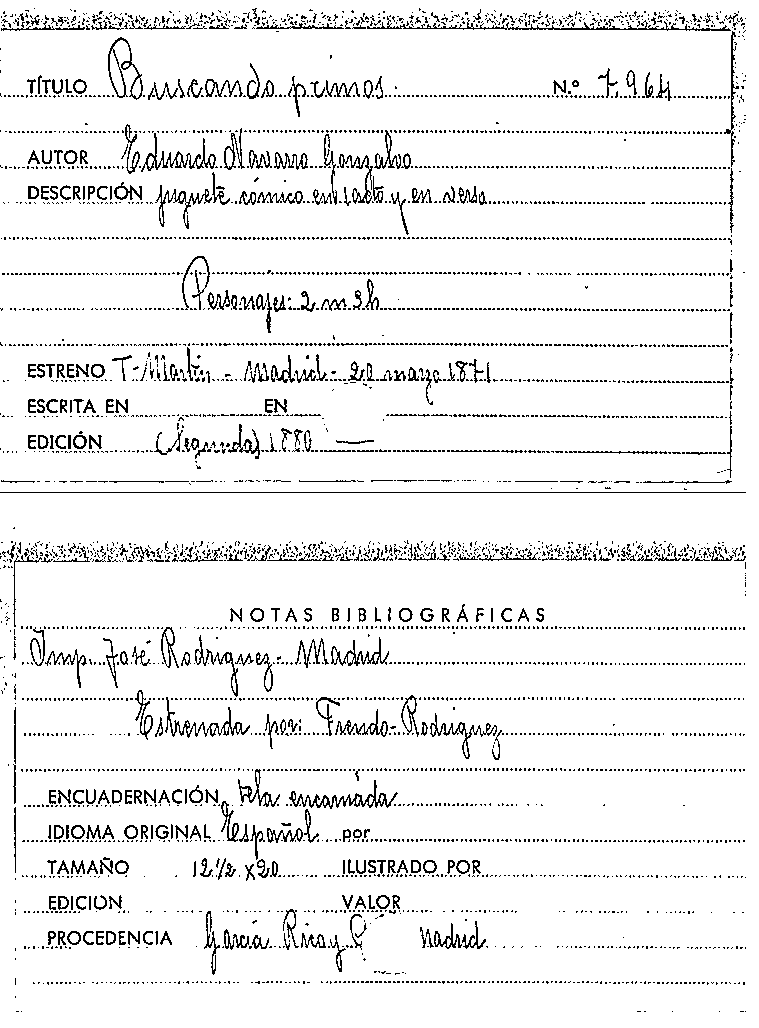 TÍTULO Buscando primos. N.º 7.964
AUTOR Eduardo Navarro Gonzalvo
DESCRIPCIÓN juguete cómico en 1 acto y en verso
Personajes: 2 m 3h
ESTRENO T. Martín - Madrid - 20 marzo 1871
ESCRITA EN EN
EDICIÓN (Segunda) 1880 —
NOTAS BIBLIOGRÁFICAS
Imp. José Rodriguez - Madrid
Estrenada por: Frendo-Rodriguez
ENCUADERNACIÓN tela encarnada
IDIOMA ORIGINAL Español por
TAMAÑO 12 1/2 x 20 ILUSTRADO POR
EDICION VALOR
PROCEDENCIA García Rico y Cª Madrid